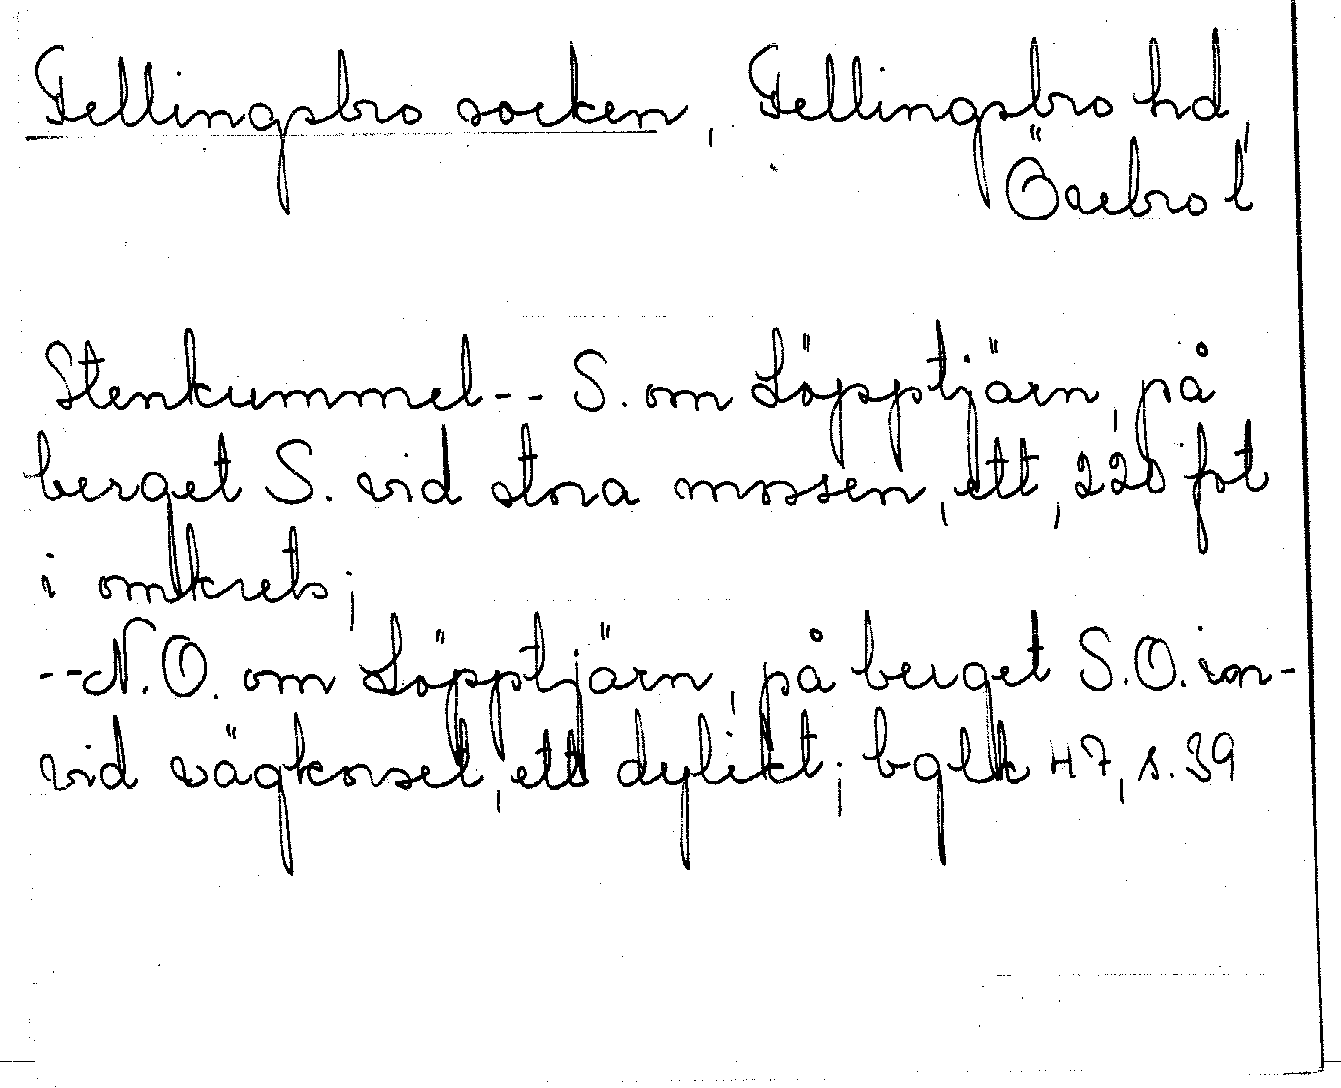 Fellingsbro socken, Fellingsbro hd,
Örebro l
Stenkummel-- S. om Löpptjärn, på
berget S. vid stora mossen, ett, 220 fot
i omkrets;
--N.O. om Löpptjärn, på berget S.O. in-
vid vägkorset, ett dylikt; bglk 47, s. 39